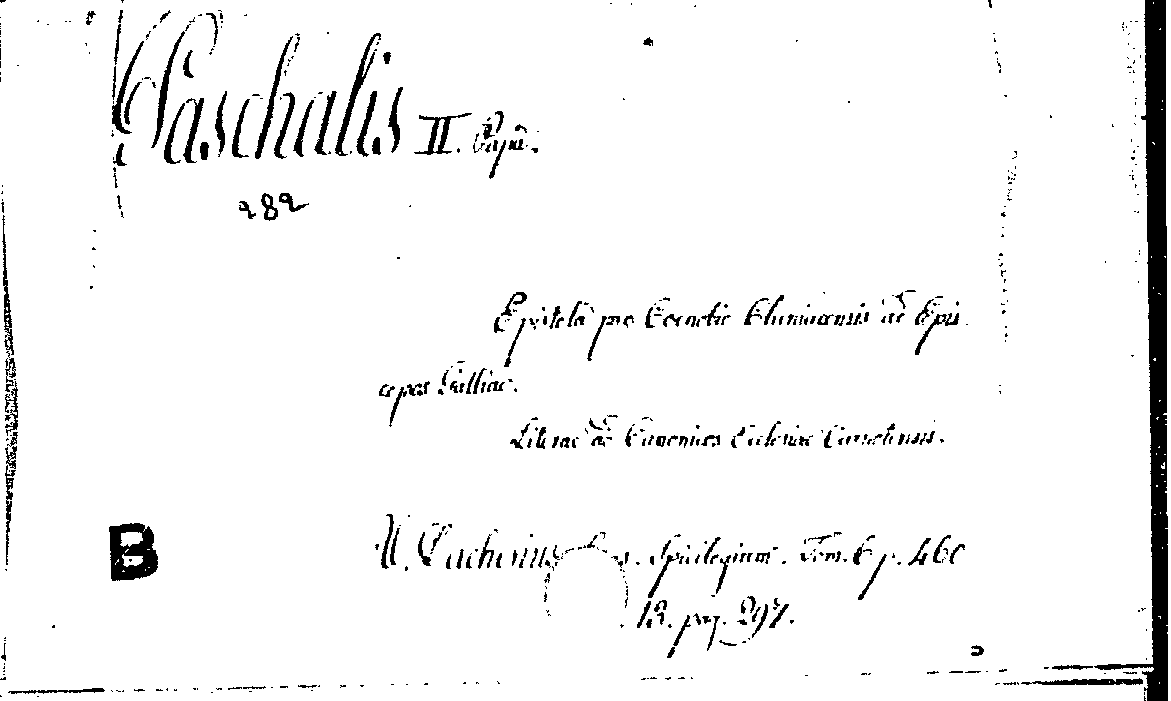 Paschalis II. Papa.
282
Epistola pro Coenobio Cluniacensis ad Epis
copos Galliae.
Literae ad Canonicos Ecclesiae Carnotensis.
B
V. Dacherius. Spicilegium. Tom. 6 p. 460
13. pag. 297.